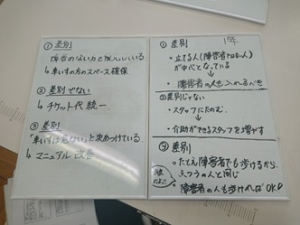 ① 差別
障害のない方を
↳ 車いすの方のスペース確保
② 差別でない
↳ チケット代統一
③ 差別
「車いすは」と決めつけている
↳ マニュアル
1年
① 差別
・立てる人(障害者ではない人)
が中心となっている
→ 障害者の人も入れるべき
② 差別じゃない
・スタッフにたのむ。
→ 介助ができるスタッフを増やす
③ 差別
・たとえ障害者でも歩けるから、
ふつうの人と同じ
障害者の人も歩ければOK!